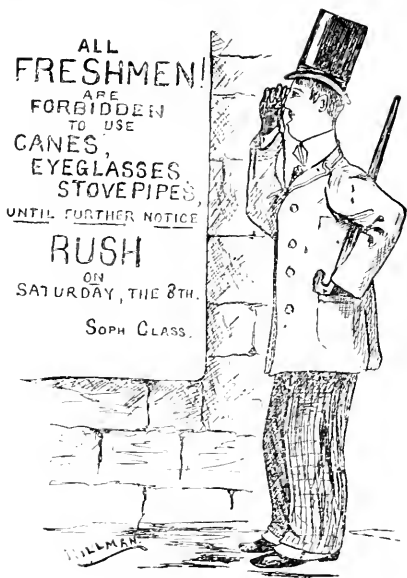 ALL
FRESHMEN!
ARE
FORBIDDEN
TO USE
CANES,
EYEGLASSES
STOVEPIPES,
UNTIL FURTHER NOTICE
RUSH
ON
SATURDAY, THE 8TH.
SOPH CLASS.
HILLMAN